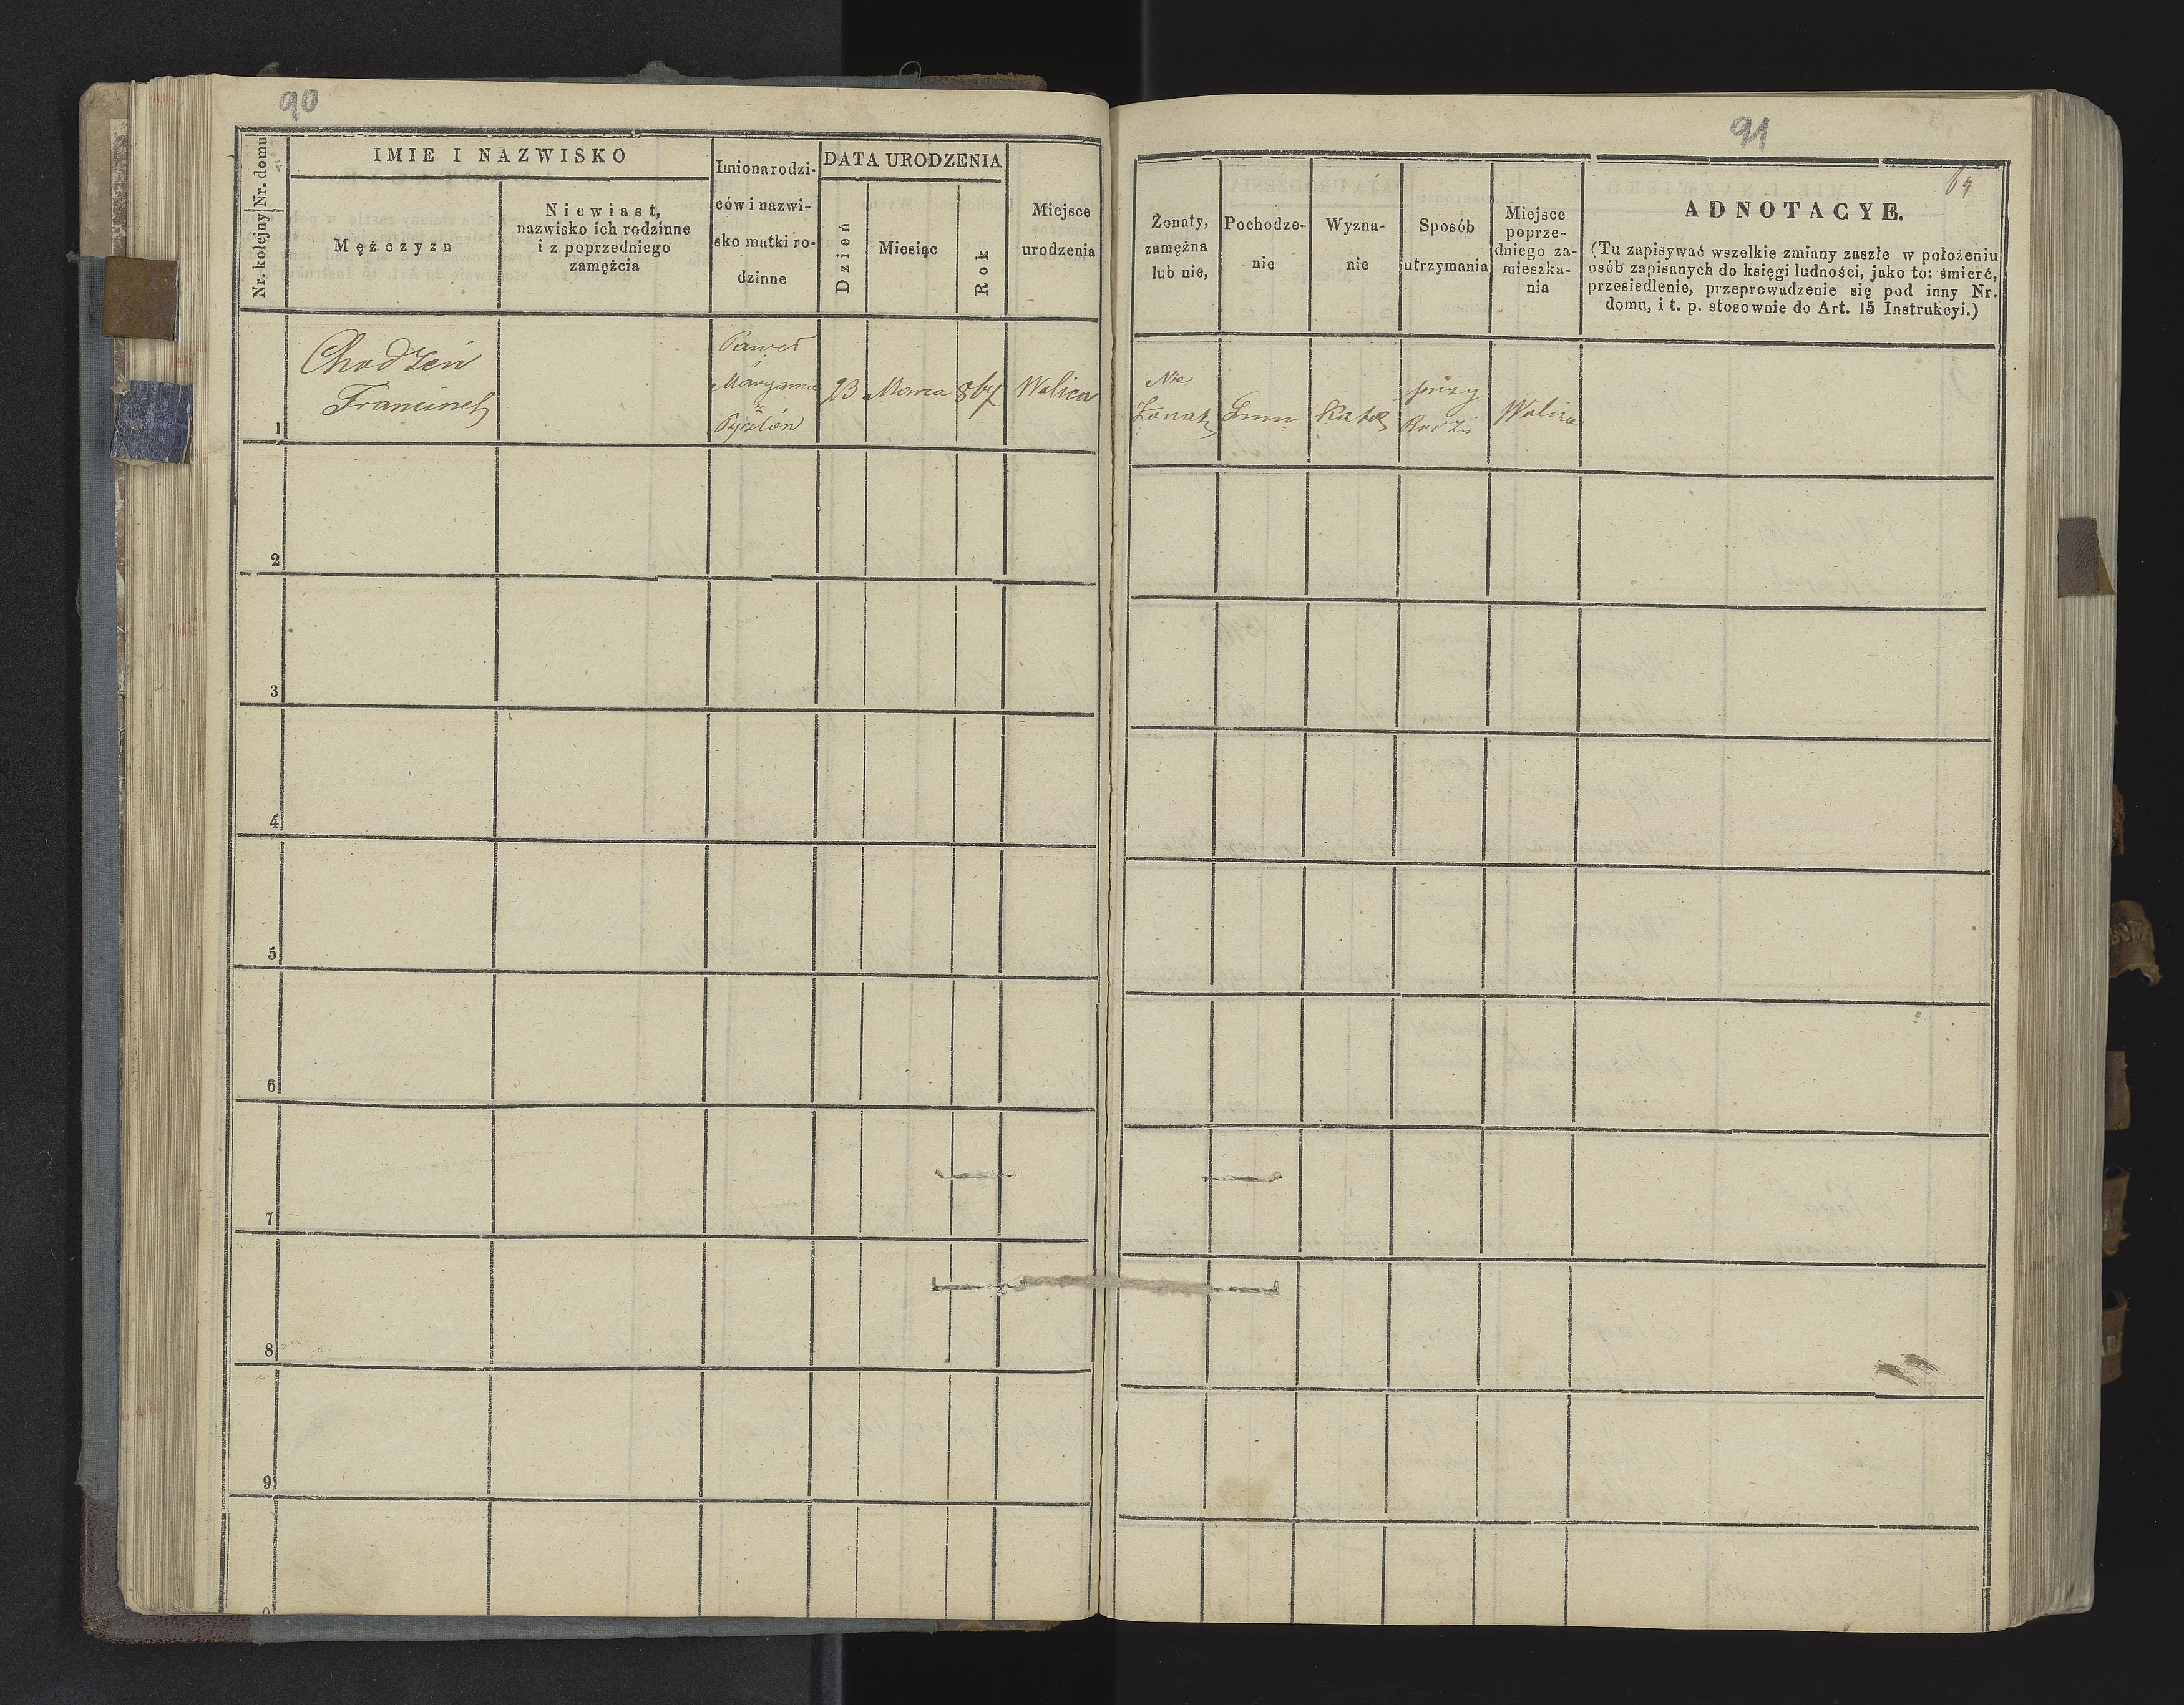 90
Nr. kolejny Nr. domu
IMIE I NAZWISKO
Mężczyzn
Niewiast,
nazwisko ich rodzinne
i z poprzedniego
zamężcia
Imiona rodzi-
ców i nazwi-
sko matki ro-
dzinne
DATA URODZENIA
Dzień
Miesiąc
Rok
Miejsce
urodzenia
1
Chodzeń
Franciszek
Paweł
i
z
23
Marca
867
Wolica
2
3
4
5
6
7
8
9
91
Żonaty,
zamężna
lub nie,
Pochodze-
nie
Wyzna-
nie
Sposób
utrzymania
Miejsce
poprze-
dniego za-
mieszka-
nia
ADNOTACYE.
(Tu zapisywać wszelkie zmiany zaszłe w położeniu
osób zapisanych do księgi ludności, jako to: śmierć,
przesiedlenie, przeprowadzenie się pod inny Nr.
domu, i t. p. stosownie do Art. 15 Instrukcyi.)
Nie
Żonaty
Katol
przy
Rodzi
Wolica